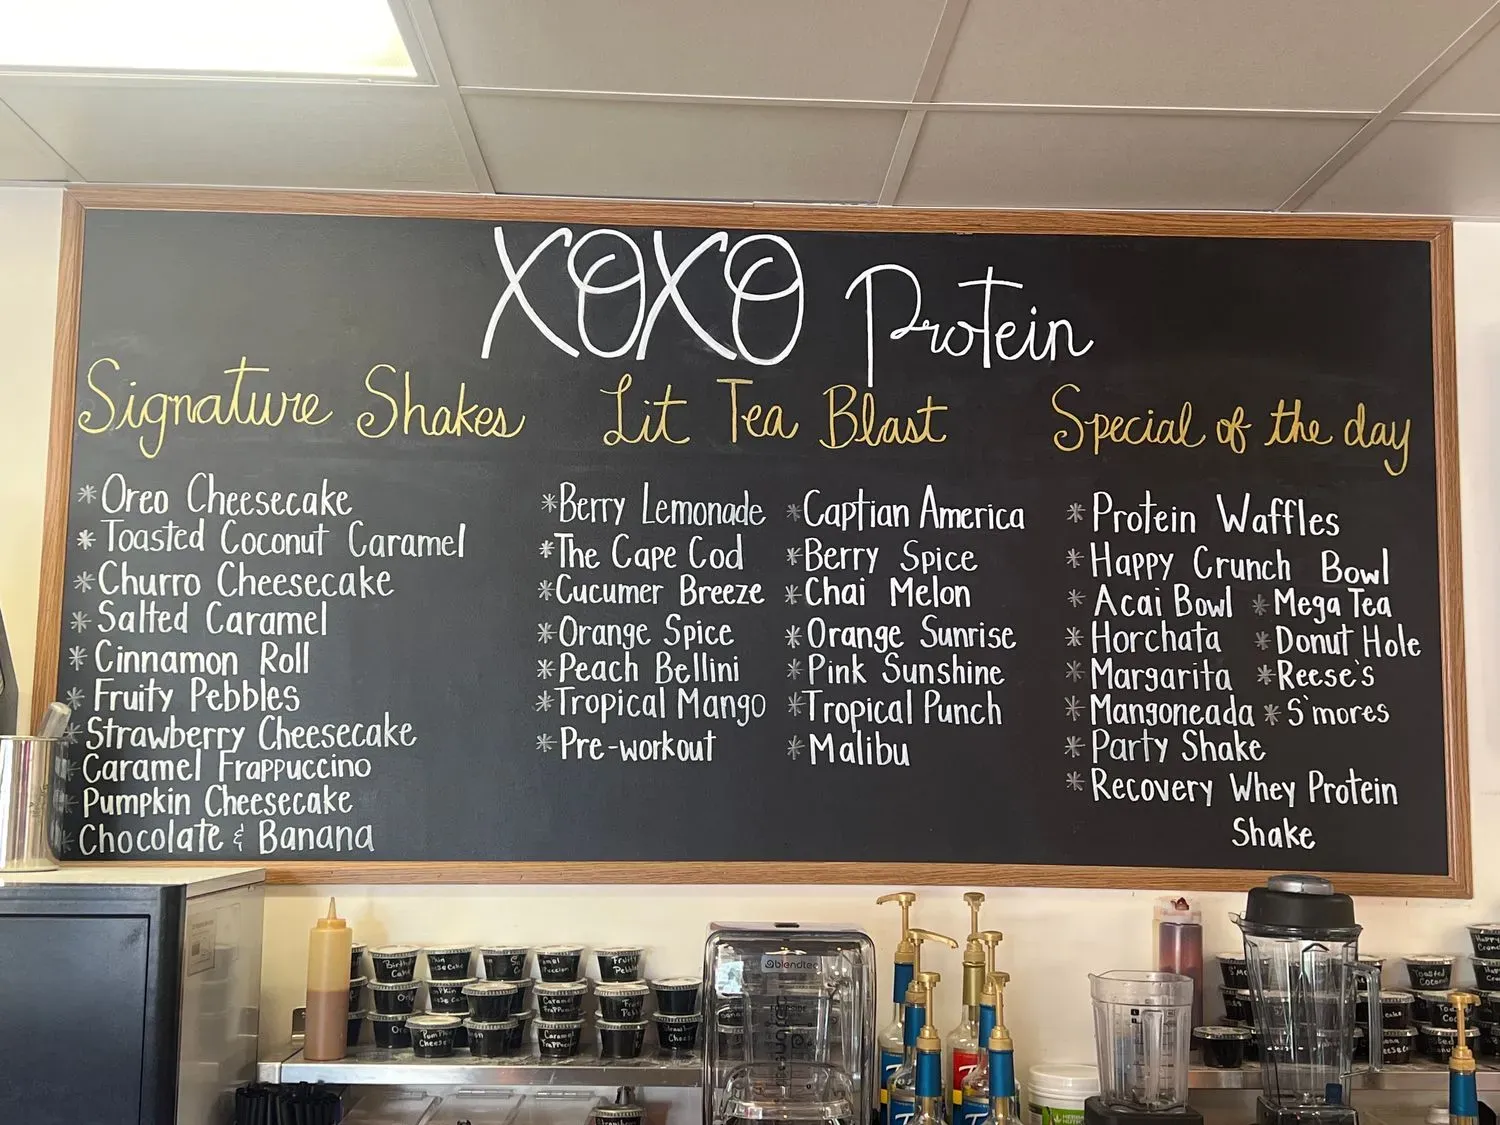 XOXO Protein
Signature Shakes
* Oreo Cheesecake
* Toasted Coconut Caramel
* Churro Cheesecake
* Salted Caramel
* Cinnamon Roll
* Fruity Pebbles
* Strawberry Cheesecake
* Caramel Frappuccino
* Pumpkin Cheesecake
* Chocolate & Banana
Lit Tea Blast
* Berry Lemonade
* The Cape Cod
* Cucumer Breeze
* Orange Spice
* Peach Bellini
* Tropical Mango
* Pre-workout
* Captian America
* Berry Spice
* Chai Melon
* Orange Sunrise
* Pink Sunshine
* Tropical Punch
* Malibu
Special of the day
* Protein Waffles
* Happy Crunch Bowl
* Acai Bowl * Mega Tea
* Horchata * Donut Hole
* Margarita * Reese's
* Mangoneada * S'mores
* Party Shake
* Recovery Whey Protein
Shake
blendtec
Birthday
Cake
Caramel
Frappuc
Pumpkin
Cheese